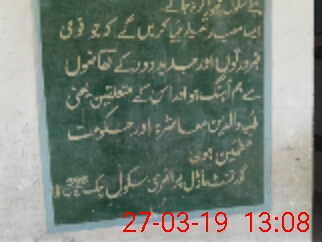 ایسا مفید تعلیم مہیا کریں گے، کہ جو قومی
ضرورتوں اور جدید دور کے تقاضوں
سے ہم آہنگ ہو اور اس کے متعلقین یعنی
طلبہ والدین معاشرہ اور حکومت
مطمئن ہوں
گورنمنٹ ماڈل پرائمری سکول چک
27-03-19 13:08